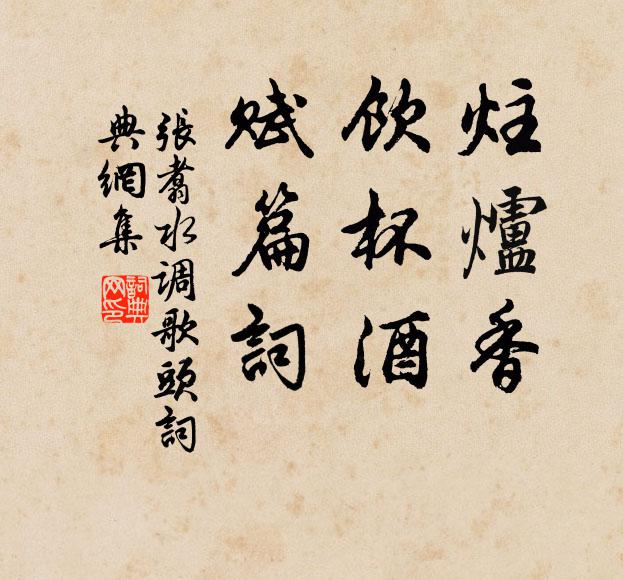 炷爐香
饮杯酒
赋篇詞
張翥水调歌頭詞
典網集
詞典
网印